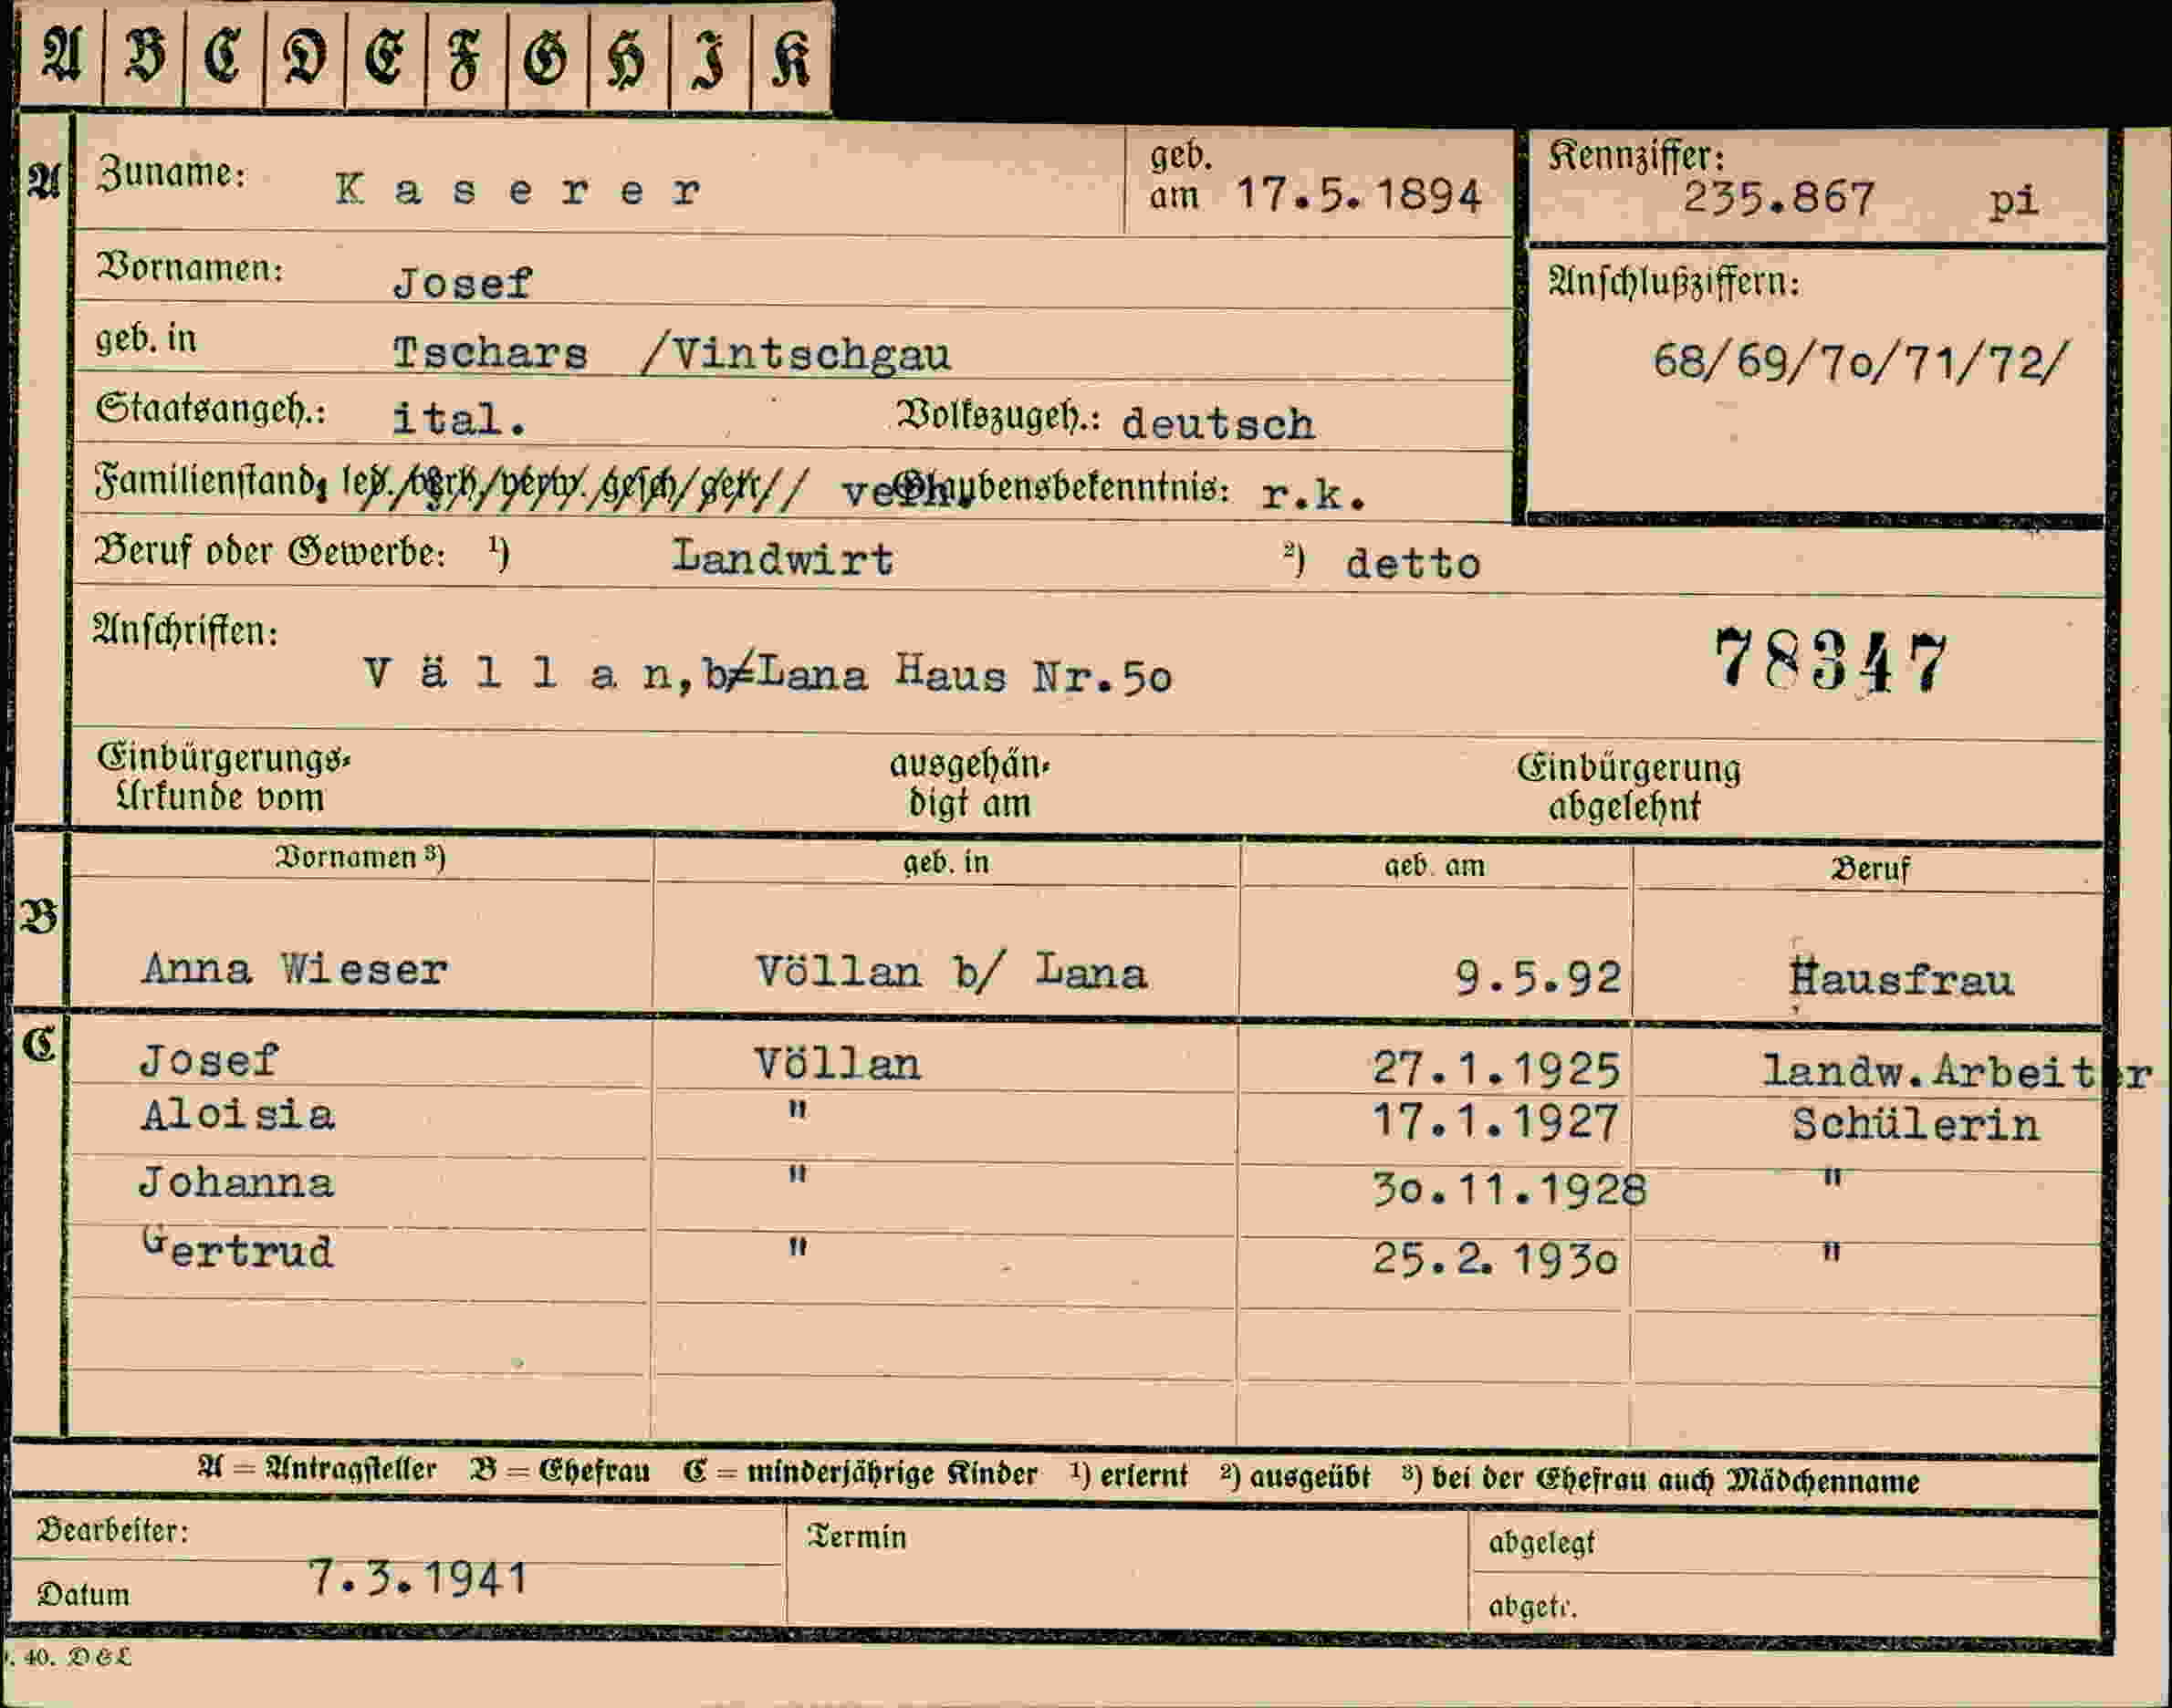 A B C D E F G H I K
A Zuname: Kaserer geb. am 17.5.1894 Kennziffer: 235.867 pi
Vornamen: Josef Anschlußziffern:
geb. in Tschars /Vintschgau 68/69/70/71/72/
Staatsangeh.: ital. Volkszugeh.: deutsch
Familienstand: led./verh/verw./gesch/getr// verh. Glaubensbekenntnis: r.k.
Beruf oder Gewerbe: ¹) Landwirt ²) detto
Anschriften: Vällan, b/Lana Haus Nr.50 78347
Einbürgerungs- ausgehän- Einbürgerung
Urkunde vom digt am abgelehnt
Vornamen ³) geb. in geb. am Beruf
B Anna Wieser Völlan b/ Lana 9.5.92 Hausfrau
C Josef Völlan 27.1.1925 landw.Arbeiter
Aloisia " 17.1.1927 Schülerin
Johanna " 30.11.1928 "
Gertrud " 25.2.1930 "
A = Antragsteller B = Ehefrau C = minderjährige Kinder ¹) erlernt ²) ausgeübt ³) bei der Ehefrau auch Mädchenname
Bearbeiter: Termin abgelegt
Datum 7.3.1941 abgetr.
40. D&L